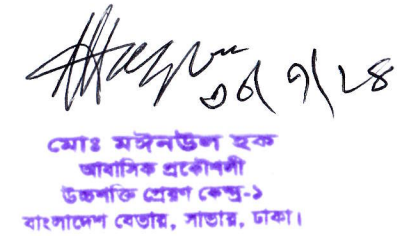 ৩০/৭/২৪
মোঃ মঈনউল হক
আবাসিক প্রকৌশলী
উচ্চশক্তি প্রেরণ কেন্দ্র-১
বাংলাদেশ বেতার, সাভার, ঢাকা।